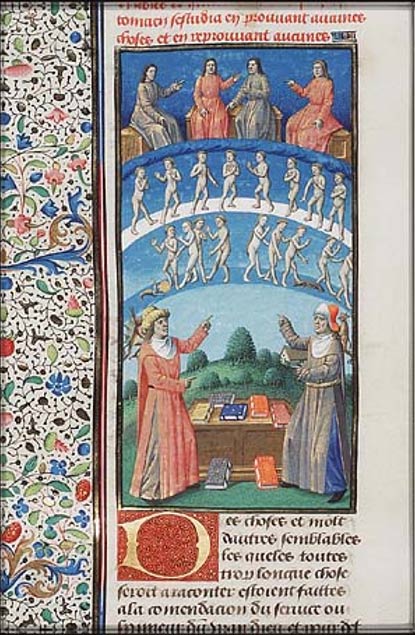 tomien sestudia en prouuant aucunes
choses et en reprouuant aucunes
Des choses et molt
dautres semblables
les queles toutes
trop longue chose
seroit a raconter estoient faittes
a la comendation du seruice ou